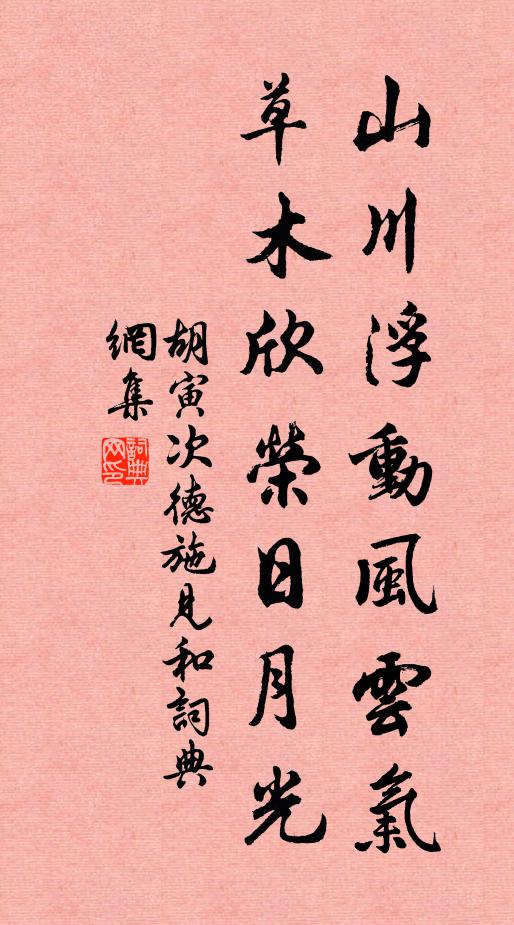 山川浮動風雲氣
草木欣榮日月光
胡寅次德施見和詞典
網集
詞典
网印